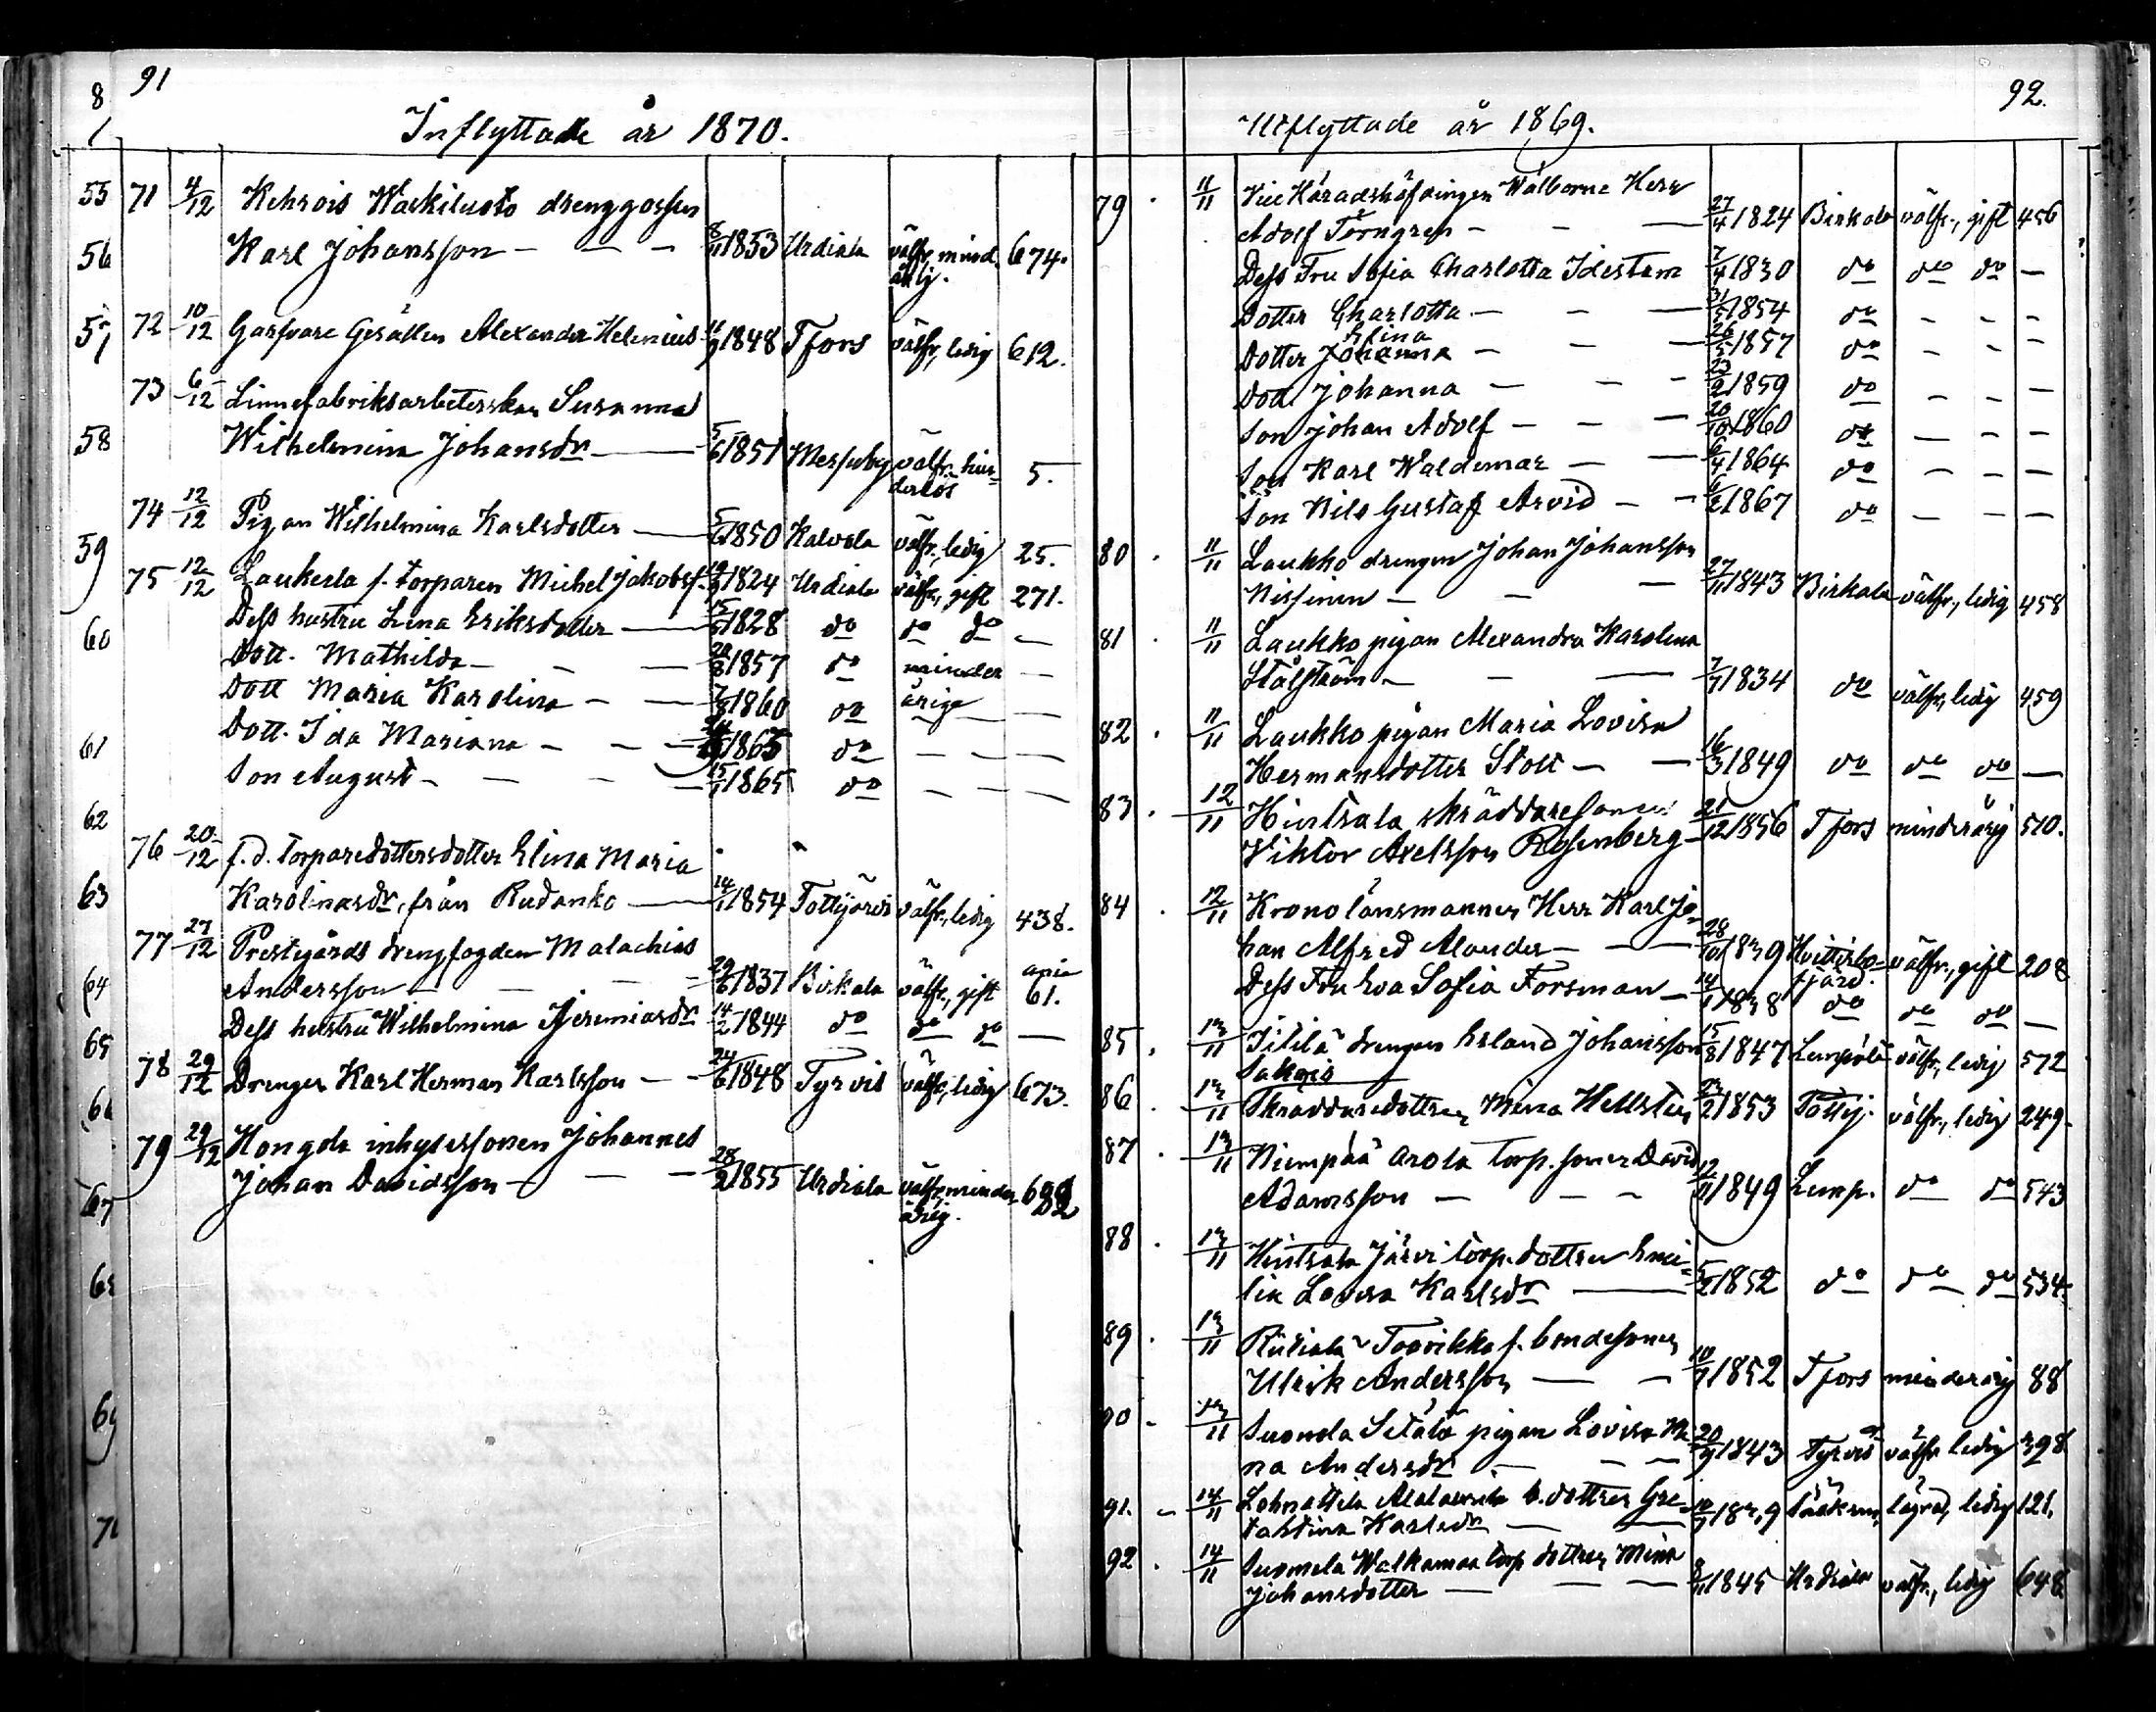 91
Inflyttade år 1870.
55 71 4/12 Kehrois Waskiluoto drenggossen
56 Karl Johansson — — — 8/11 1853 Urdiala välfr., mind. 674.
årig.
57 72 10/12 Garfvare Gesällen Alexander Helenius 1848 Tfors välfr., ledig 612.
73 6/12 Linnefabriksarbeterskan Susanna
58 Wilhelmina Johansdr — 5/6 1851 Messuby välfr. hin- 5.
derlös
74 12/12 Pigan Wilhelmina Karlsdotter — 5/6 1850 Kalvola välfr., ledig 25.
59 75 12/12 Laukeela f. torparen Michel Jakobss. 1824 Urdiala välfr., gift 271.
60 Dess hustru Lena Eriksdotter — 1828 do do do —
Dott. Mathilda — — — 1857 do minder —
Dott Maria Karolina — — 1860 do åriga —
61 Dott. Ida Mariana — — — 1865 do — — —
Son August — — — — 15/1 1865 do — — —
62
76 20/12 f. d. torparedottersdotter Elina Maria
63 Karolinasdr, från Rudanko — 14/11 1854 Tottijärvi välfr., ledig 438.
77 27/12 Prestgårds drengfogden Malachias
64 Andersson — — — 29/6 1837 Birkala välfr., gift 61.
Dess hustru Wilhelmina Jeremiasdr 14/2 1844 do do do —
65 78 29/12 Drengen Karl Herman Karlsson — — 24/6 1848 Tyrvis välfr., ledig 673.
66
79 29/12 Hongola inhysessonen Johannes
67 Johan Davidsson — — — 28/2 1855 Urdiala välfr., minder-
årig.
68
69
92.
Utflyttade år 1869.
79 . 11/11 Vice Häradshöfdingen Wälborne Herr
Adolf Törngren — — — 27/4 1824 Birkala välfr., gift 456
Dess Fru Sofia Charlotta Idestam 7/4 1830 do do do —
Dotter Charlotta — — — 1854 do — — —
Elina
Dotter Johanna — — — 1857 do — — —
Dott Johanna — — — 23/2 1859 do — — —
Son Johan Adolf — — — 20/10 1860 do — — —
Son Karl Waldemar — — 6/4 1864 do — — —
Son Nils Gustaf Arvid — — 1867 do — — —
80 . 11/11 Laukko drengen Johan Johansson
Nissinen — — — 27/11 1843 Birkala välfr., ledig 458
81 . 11/11 Laukko pigan Alexandra Karolina
Stålström — — — 7/7 1834 do välfr., ledig 459
82 . 11/11 Laukko pigan Maria Lovisa
Hermansdotter Stolt — — 16/3 1849 do do do —
83 . 12/11 Hintsala skräddaresonen
Viktor Axelsson Rosenberg — 21/12 1856 Tfors minderårig 510.
84 . 12/11 Krono länsmannen Herr Karl Jo-
han Alfred Alander — — — 28/10 1839 Hvittisbo- välfr., gift 208
fjärd.
Dess Fru Eva Sofia Forsman — 14/1 1838 do do do —
85 . 13/11 drengen Erland Johansson 15/8 1847 Lempälä välfr., ledig 572
86 . 13/11 Skräddaredottren Mina Hellsten 23/2 1853 Tottij. välfr., ledig 249.
87 . 13/11 Niempää Arola torp. sonen David
Adamsson — — — 12/11 1849 Lemp. do do 543
88 . 13/11 Hintsala Järvi torp. dottren Emi-
lia Lovisa Karlsdr — 5/2 1852 do do do 534.
89 . 13/11 Toorikka f. bondesonen
Ulrik Andersson — — 10/7 1852 Tfors minderårig 88
90 — 13/11 Suomela Sitälä pigan Lovisa Ma
na Andersdr — — — 20/9 1843 Tyrvis välfr. ledig 398
91. — 14/11 b. dottren Gre-
ta Stina Karlsdr — — 10/7 1839 ledig 121.
92 . 14/11 Suomela Walkamaa torp dottren Mina
Johansdotter — — — 1845 Urdiala välfr., ledig 648